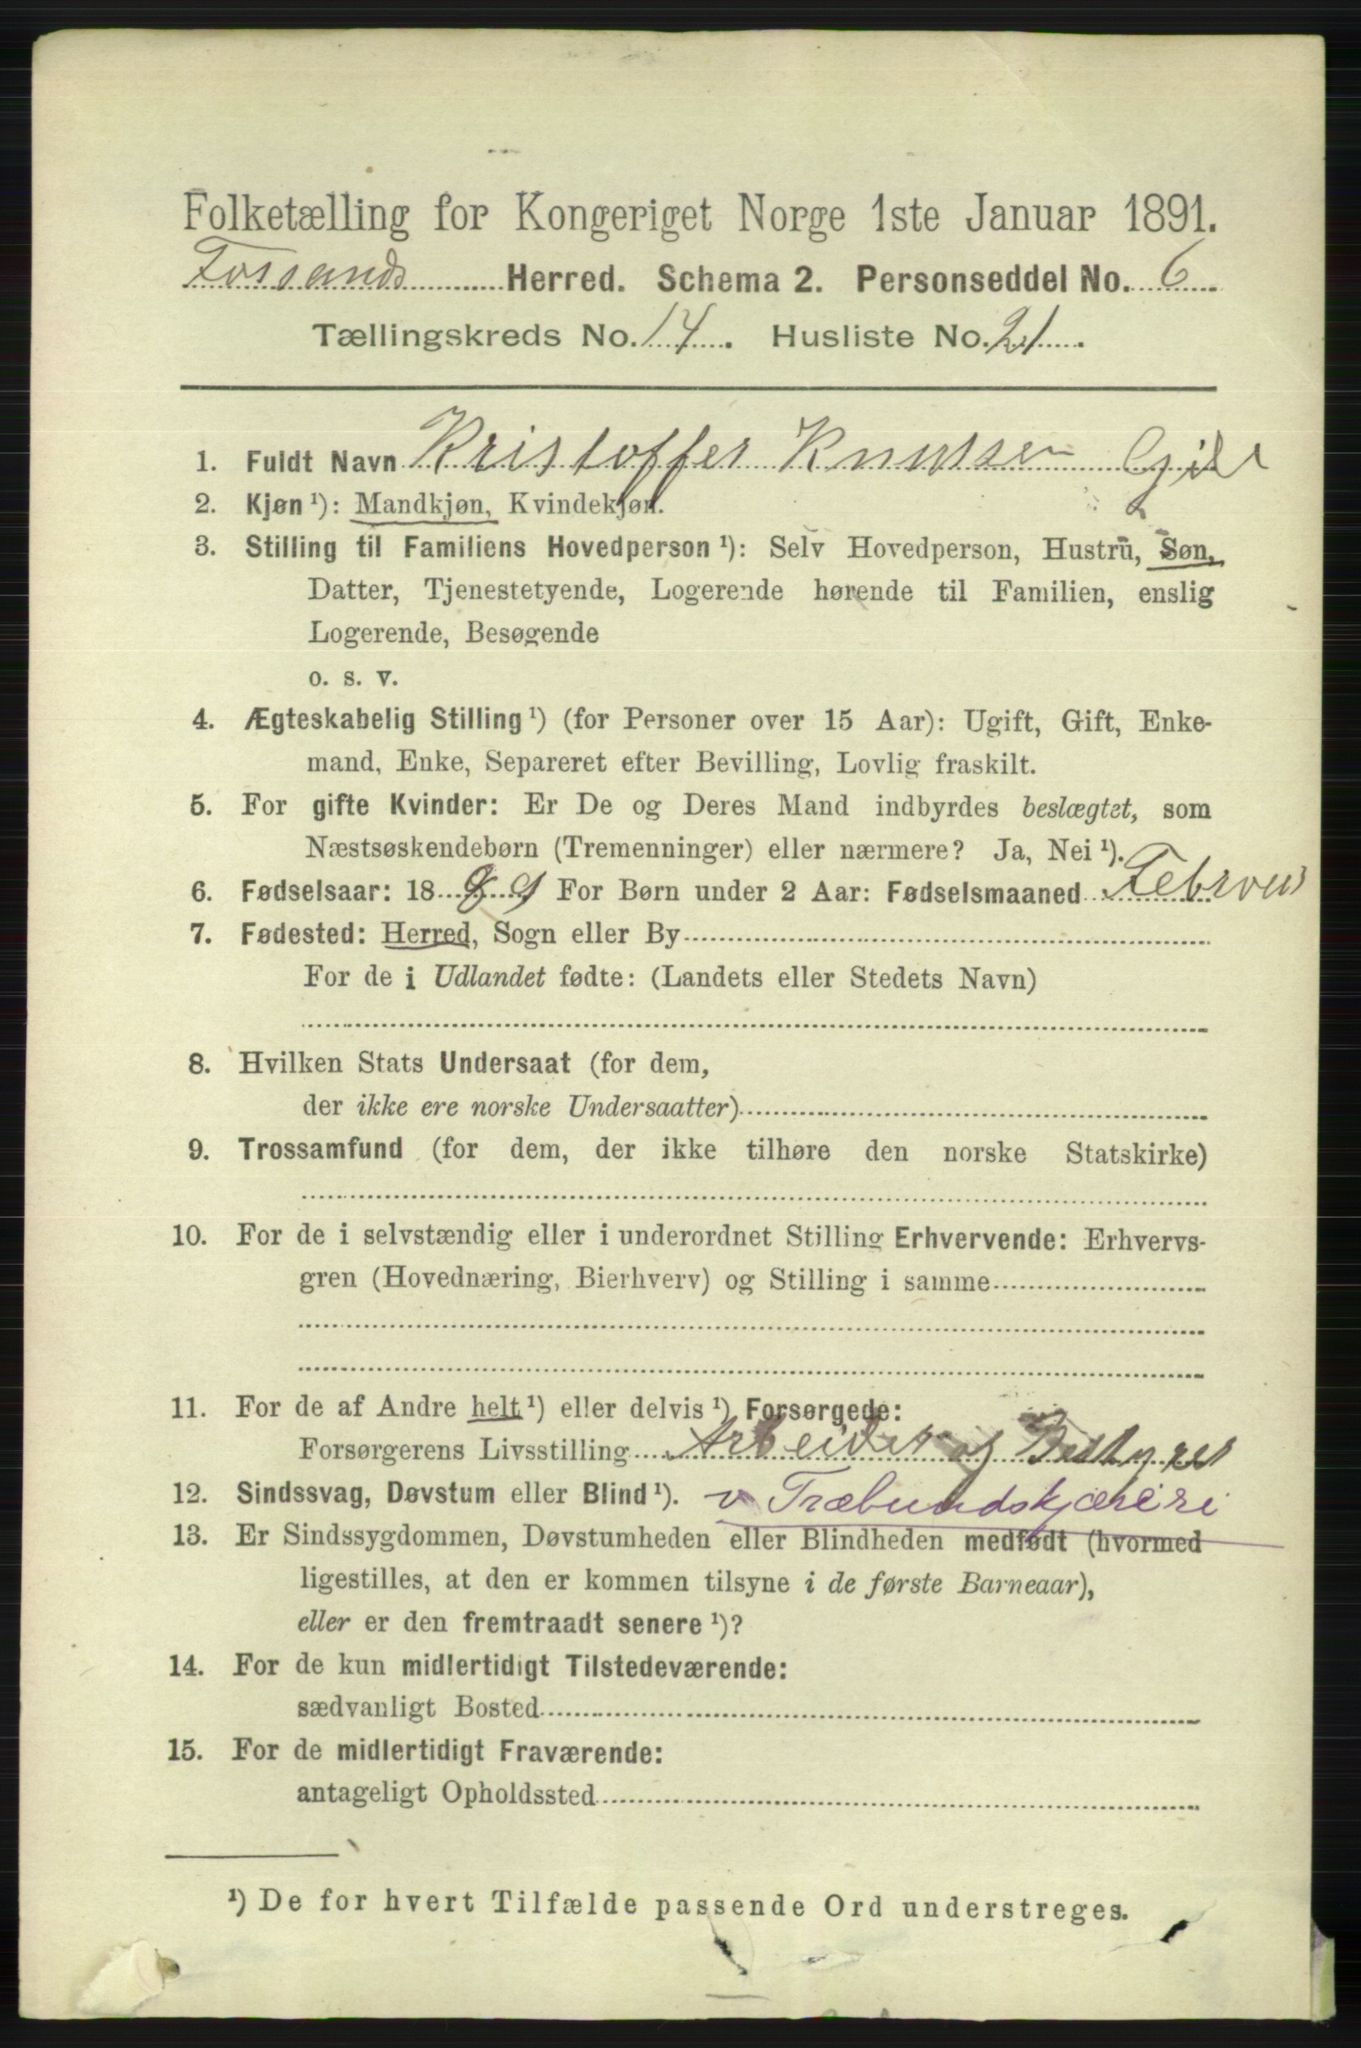 Folketælling for Kongeriget Norge 1ste Januar 1891.
Fossands Herred. Schema 2. Personseddel No. 6
Tællingskreds No. 14. Husliste No. 21.
1. Fuldt Navn Kristoffer Knutsen
2. Kjøn ¹): Mandkjøn, Kvindekjøn.
3. Stilling til Familiens Hovedperson ¹): Selv Hovedperson, Hustru, Søn,
Datter, Tjenestetyende, Logerende hørende til Familien, enslig
Logerende, Besøgende
o. s. v.
4. Ægteskabelig Stilling ¹) (for Personer over 15 Aar): Ugift, Gift, Enke-
mand, Enke, Separeret efter Bevilling, Lovlig fraskilt.
5. For gifte Kvinder: Er De og Deres Mand indbyrdes beslægtet, som
Næstsøskendebørn (Tremenninger) eller nærmere? Ja, Nei ¹).
6. Fødselsaar: 1889 For Børn under 2 Aar: Fødselsmaaned Februar
7. Fødested: Herred, Sogn eller By
For de i Udlandet fødte: (Landets eller Stedets Navn)
8. Hvilken Stats Undersaat (for dem,
der ikke ere norske Undersaatter)
9. Trossamfund (for dem, der ikke tilhøre den norske Statskirke)
10. For de i selvstændig eller i underordnet Stilling Erhvervende: Erhvervs-
gren (Hovednæring, Bierhverv) og Stilling i samme
11. For de af Andre helt ¹) eller delvis ¹) Forsørgede:
Forsørgerens Livsstilling Arbeider og Bestyrer
12. Sindssvag, Døvstum eller Blind ¹). v Træbundskjæreri
13. Er Sindssygdommen, Døvstumheden eller Blindheden medfødt (hvormed
ligestilles, at den er kommen tilsyne i de første Barneaar),
eller er den fremtraadt senere ¹)?
14. For de kun midlertidigt Tilstedeværende:
sædvanligt Bosted
15. For de midlertidigt Fraværende:
antageligt Opholdssted
¹) De for hvert Tilfælde passende Ord understreges.